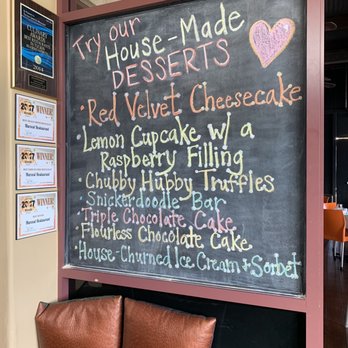 Try our
House-Made
DESSERTS
• Red Velvet Cheesecake
• Lemon Cupcake w/ a
Raspberry Filling
• Chubby Hubby Truffles
• Snickerdoodle Bar
• Triple Chocolate Cake
• Flourless Chocolate Cake
• House-Churned Ice Cream + Sorbet
2014
2017 WINNER!
Harvest Restaurant
2017 WINNER!
Harvest Restaurant
2017 WINNER!
Harvest Restaurant